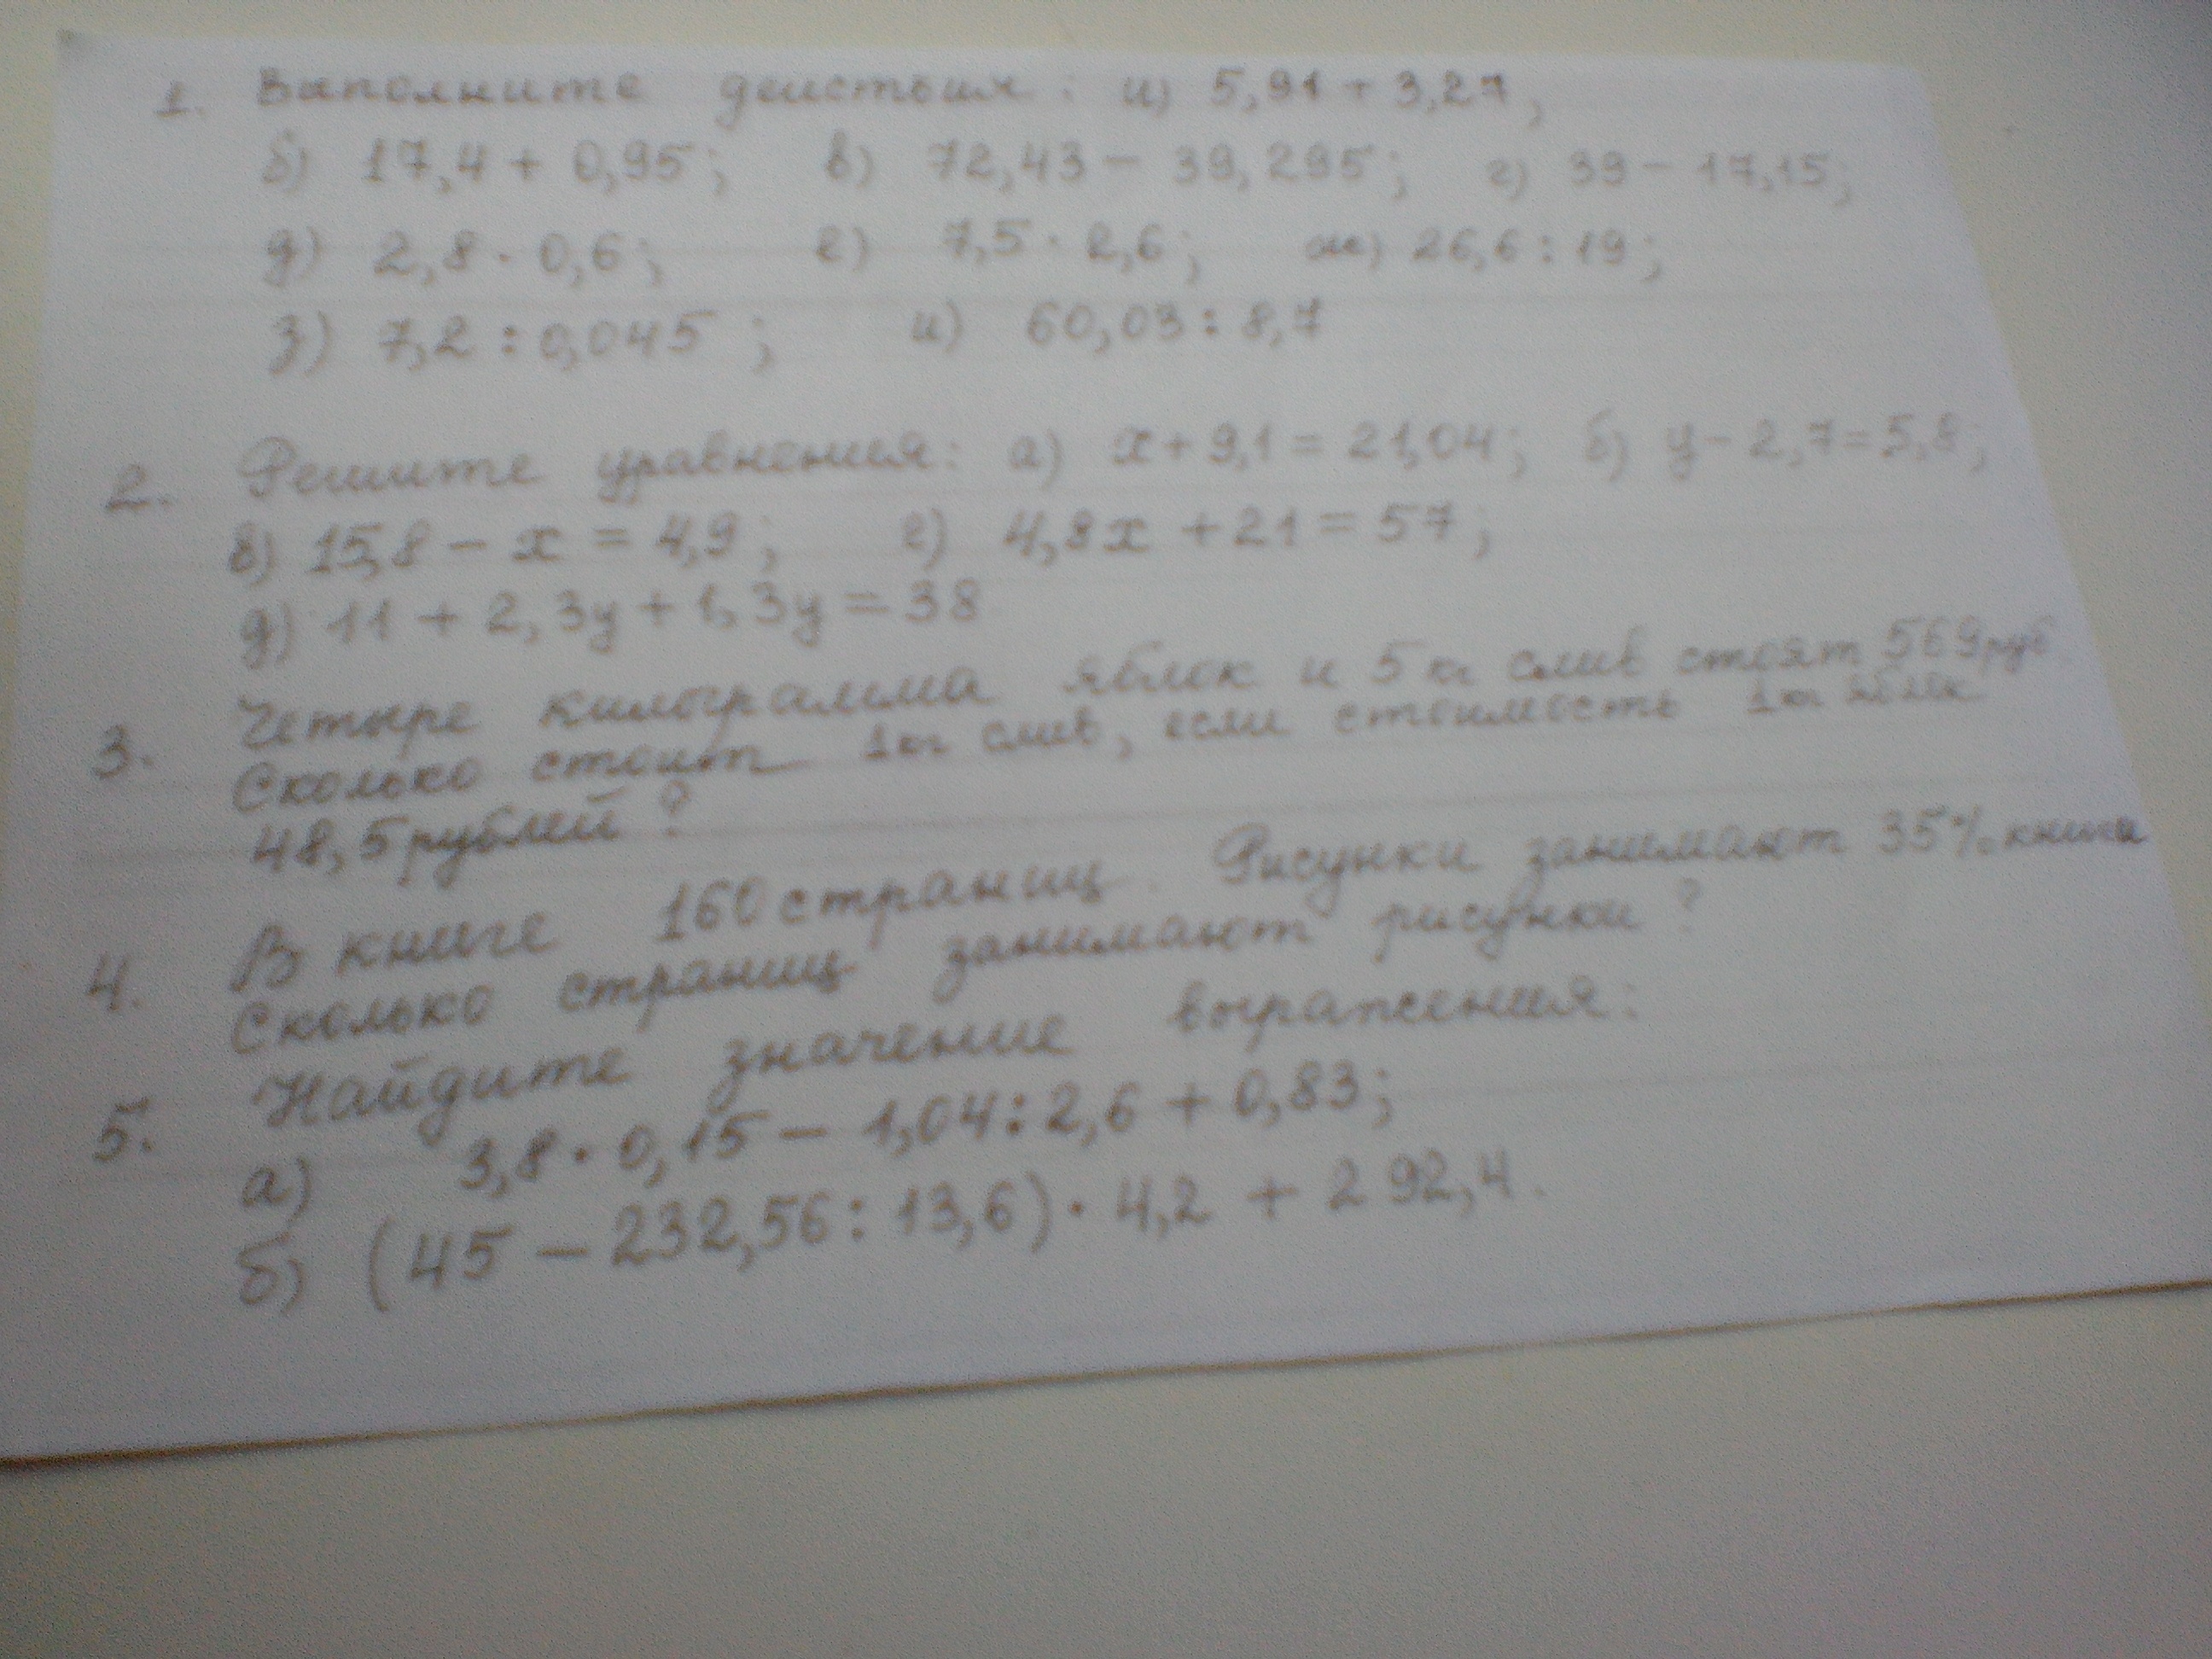 1. Выполните действия: а) 5,91 + 3,27;
б) 17,4 + 0,95; в) 72,43 - 39,295; г) 39 - 17,15;
д) 2,8 · 0,6; е) 7,5 · 2,6; ж) 26,6 : 19;
з) 7,2 : 0,045; и) 60,03 : 8,7
2. Решите уравнения: а) x + 9,1 = 21,04; б) y - 2,7 = 5,8;
в) 15,8 - x = 4,9; г) 4,8x + 21 = 57;
д) 11 + 2,3y + 1,3y = 38
3. Четыре килограмма яблок и 5 кг слив стоят 569 руб
Сколько стоит 1 кг слив, если стоимость 1 кг яблок
48,5 рублей?
4. В книге 160 страниц. Рисунки занимают 35% книги
Сколько страниц занимают рисунки?
5. Найдите значение выражения:
а) 3,8 · 0,15 - 1,04 : 2,6 + 0,83;
б) (45 - 232,56 : 13,6) · 4,2 + 292,4.